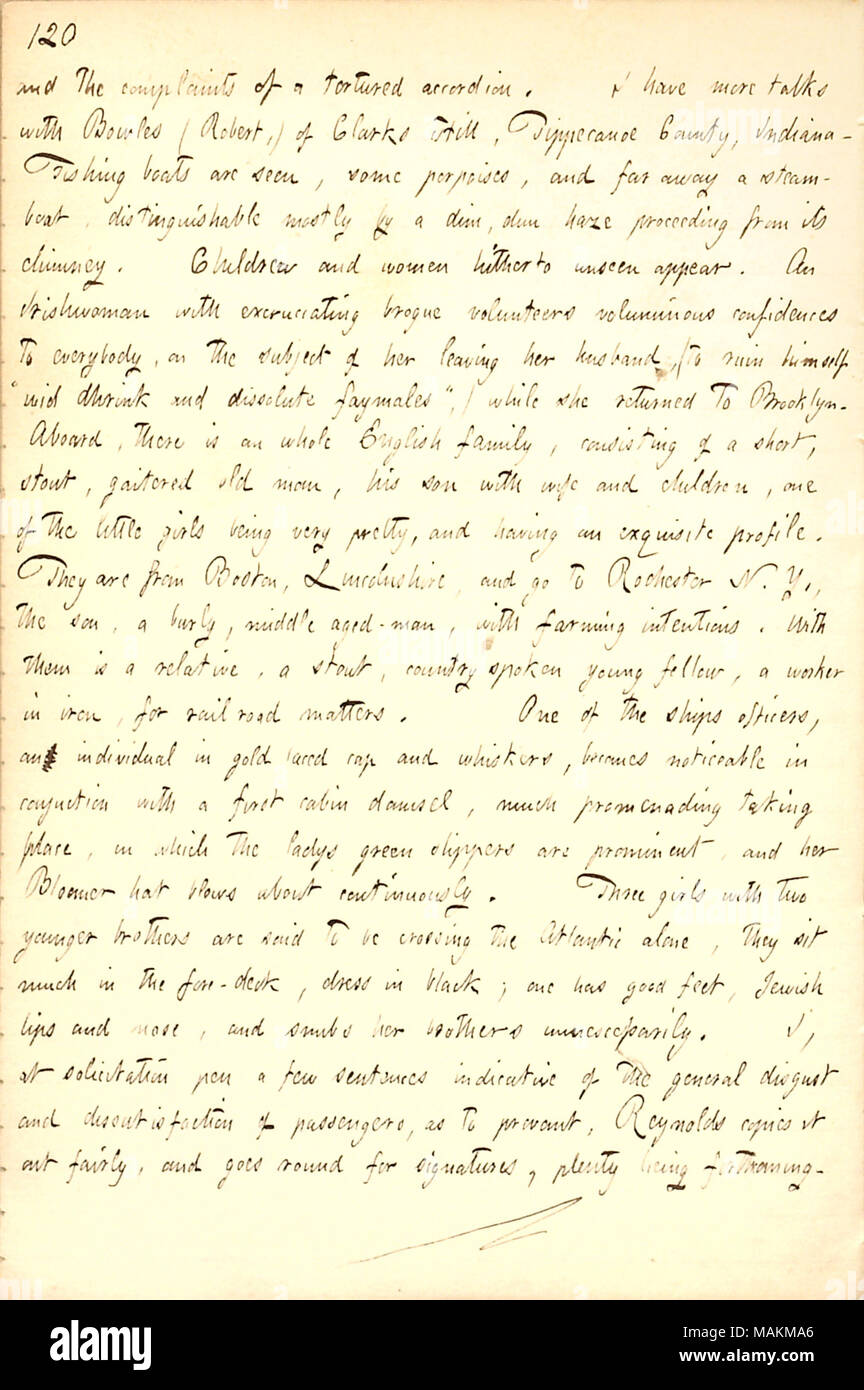 120
and the complaints of a tortured accordion. I have more talks
with Bowles (Robert,) of Clarks Hill, Tippecanoe County, Indiana-
Fishing boats are seen, some porpoises, and far away a steam-
boat, distinguishable mostly by a dim, dun haze proceeding from its
chimney. Children and women hitherto unseen appear. An
Irishwoman with excruciating brogue volunteers voluminous confidences
to everybody, on the subject of her leaving her husband, (to ruin himself
"wid dhrink and dissolute faymales",) while she returned to Brooklyn-
Aboard, there is an whole English family, consisting of a short,
stout, gaitered old man, his son with wife and children, one
of the little girls being very pretty, and having an exquisite profile.
They are from Boston, Lincolnshire, and go to Rochester N. Y.,
the son, a burly, middle aged-man, with farming intentions. With
them is a relative, a stout, country spoken young fellow, a worker
in iron, for rail road matters. One of the ships officers,
an individual in gold laced cap and whiskers, becomes noticeable in
conjuction with a first cabin damsel, much promenading taking
place, in which the ladys green slippers are prominent, and her
Bloomer hat blows about continuously. Three girls with two
younger brothers are said to be crossing the Atlantic alone, they sit
much in the fore-deck, dress in black; one has good feet, Jewish
lips and nose, and snubs her brothers unnescesarily. I,
at solicitation pen a few sentences indicative of the general disgust
and dissatisfaction of passengers, as to provant, Reynolds copies it
out fairly, and goes round for signatures, plenty being forthcoming-
alamy
Image ID: MAKMA6
www.alamy.com